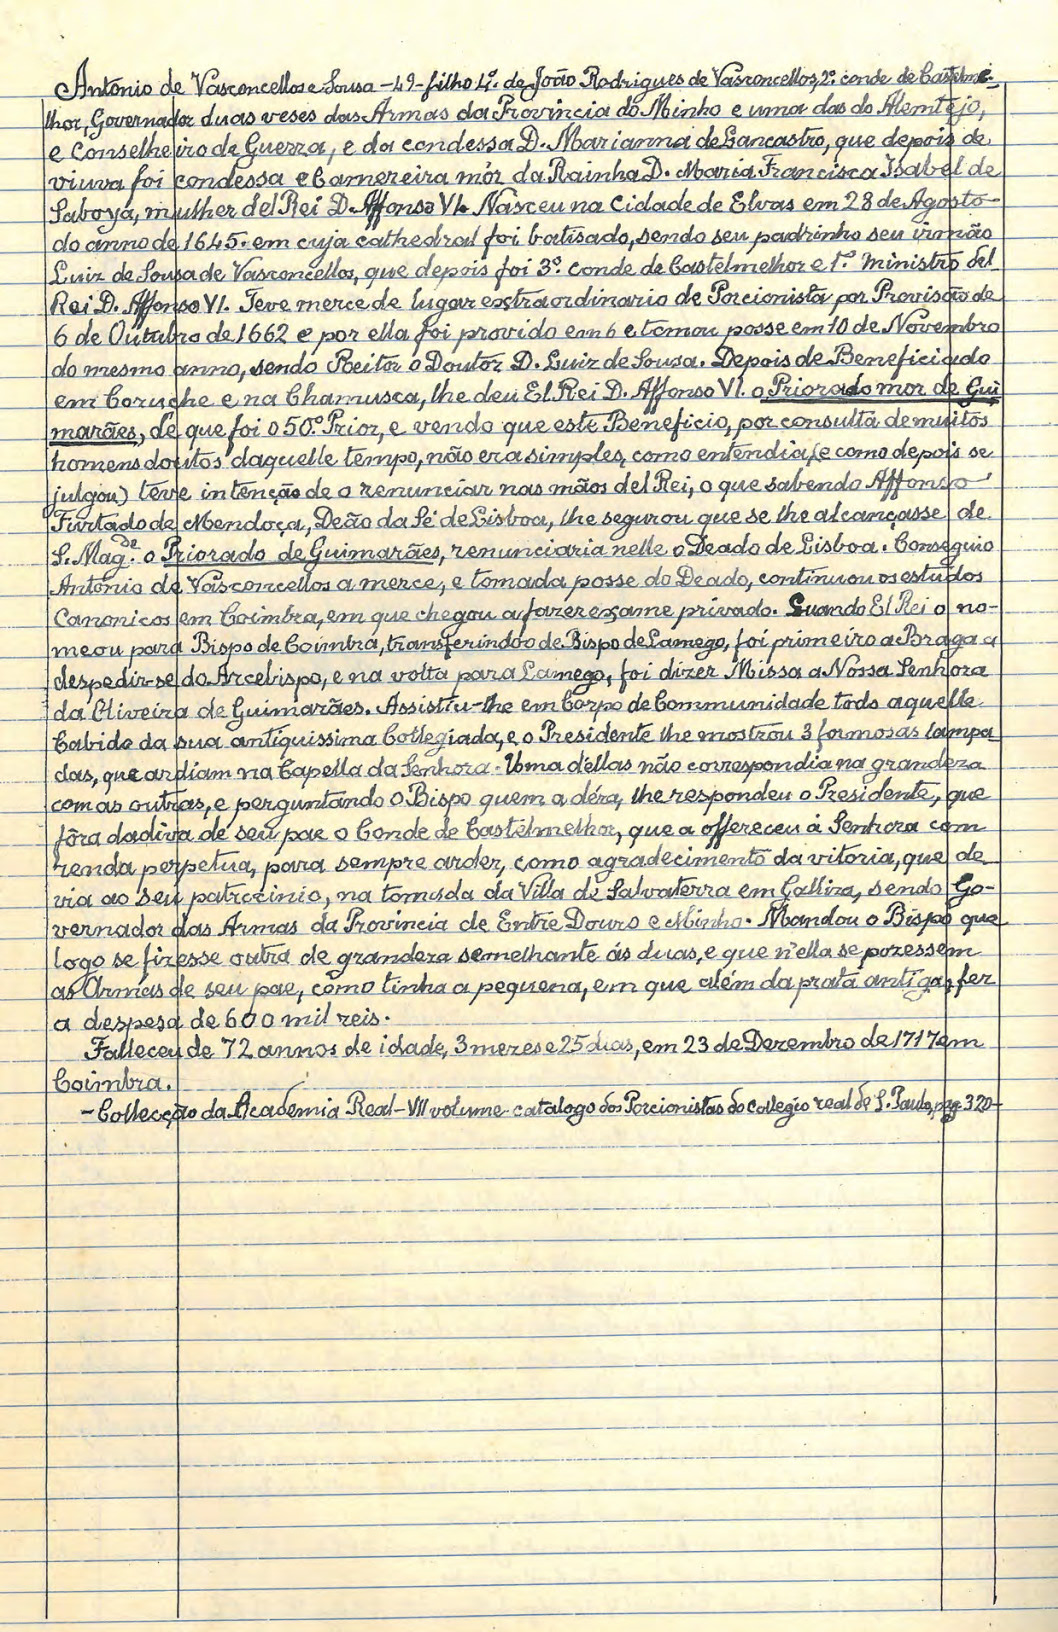 Antonio de Vasconcellos e Sousa - 49 - filho 4º. de João Rodrigues de Vasconcellos, 2º. conde de Castelme-
lhor, Governador duas veses das Armas da Provincia do Minho e uma das do Alemtejo,
e Conselheiro de Guerra, e da condessa D. Marianna de Lancastro, que depois de
viuva foi condessa e Camereira mór da Rainha D. Maria Francisca Isabel de
Saboya, mulher del Rei D. Affonso VI. Nasceu na Cidade de Elvas em 28 de Agosto
do anno de 1645. em cuja cathedral foi batisado, sendo seu padrinho seu irmão
Luiz de Sousa de Vasconcellos, que depois foi 3º. conde de Castelmelhor e 1º. Ministro del
Rei D. Affonso VI. Teve merce de lugar extraordinario de Porcionista por Provisão de
6 de Outubro de 1662 e por ella foi provido em 6 e tomou posse em 10 de Novembro
do mesmo anno, sendo Reitor o Doutor D. Luiz de Sousa. Depois de Beneficiado
em Coruche e na Chamusca, lhe deu El Rei D. Affonso VI. o Priorado mor de Gui
marães, de que foi o 50º. Prior, e vendo que este Beneficio, por consulta de muitos
homens doutos daquelle tempo, não era simples, como entendia, (e como depois se
julgou) teve intenção de o renunciar nas mãos del Rei, o que sabendo Affonso
Furtado de Mendoça, Deão da Sé de Lisboa, lhe segurou que se lhe alcançasse de
S. Magde. o Priorado de Guimarães, renunciaria nelle o Deado de Lisboa. Conseguio
Antonio de Vasconcellos a merce, e tomada posse do Deado, continuou os estudos
Canonicos em Coimbra, em que chegou a fazer exame privado. Quando El Rei o no-
meou para Bispo de Coimbra, transferindo-o de Bispo de Lamego, foi primeiro a Braga a
despedir-se do Arcebispo, e na volta para Lamego, foi dizer Missa a Nossa Senhora
da Oliveira de Guimarães. Assistiu-lhe em Corpo de Communidade todo aquelle
Cabido da sua antiquissima Collegiada, e o Presidente lhe mostrou 3 formosas lampa
das, que ardiam na Capella da Senhora. Uma d'ellas não correspondia na grandeza
com as outras, e perguntando o Bispo quem a déra, lhe respondeu o Presidente, que
fôra dadiva de seu pae o Conde de Castelmelhor, que a offereceu á Senhora com
renda perpetua, para sempre arder, como agradecimento da vitoria, que de
via ao seu patrocinio, na tomada da Villa de Salvaterra em Galliza, sendo Go-
vernador das Armas da Provincia de Entre Douro e Minho. Mandou o Bispo que
logo se fizesse outra de grandeza semelhante ás duas, e que n'ella se pozessem
as Armas de seu pae, como tinha a pequena, em que além da prata antiga, fez
a despesa de 600 mil reis.
Falleceu de 72 annos de idade, 3 mezes e 25 dias, em 23 de Dezembro de 1717 em
Coimbra.
- Collecção da Academia Real - VII volume catalogo dos Porcionistas do collegio real de S. Paulo, pag. 320 -